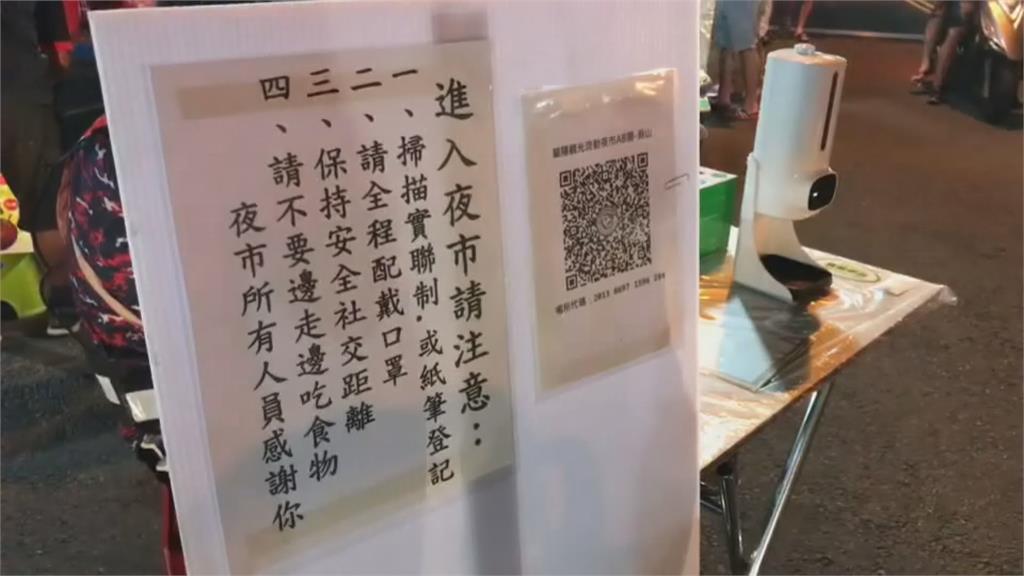 進入夜市請注意：
一、掃描實聯制．或紙筆登記
二、請全程配戴口罩
三、保持安全社交距離
四、請不要邊走邊吃食物
夜市所有人員感謝你
蘭陽觀光流動夜市AB團-蘇山
場所代碼：2013 8697 1596 284